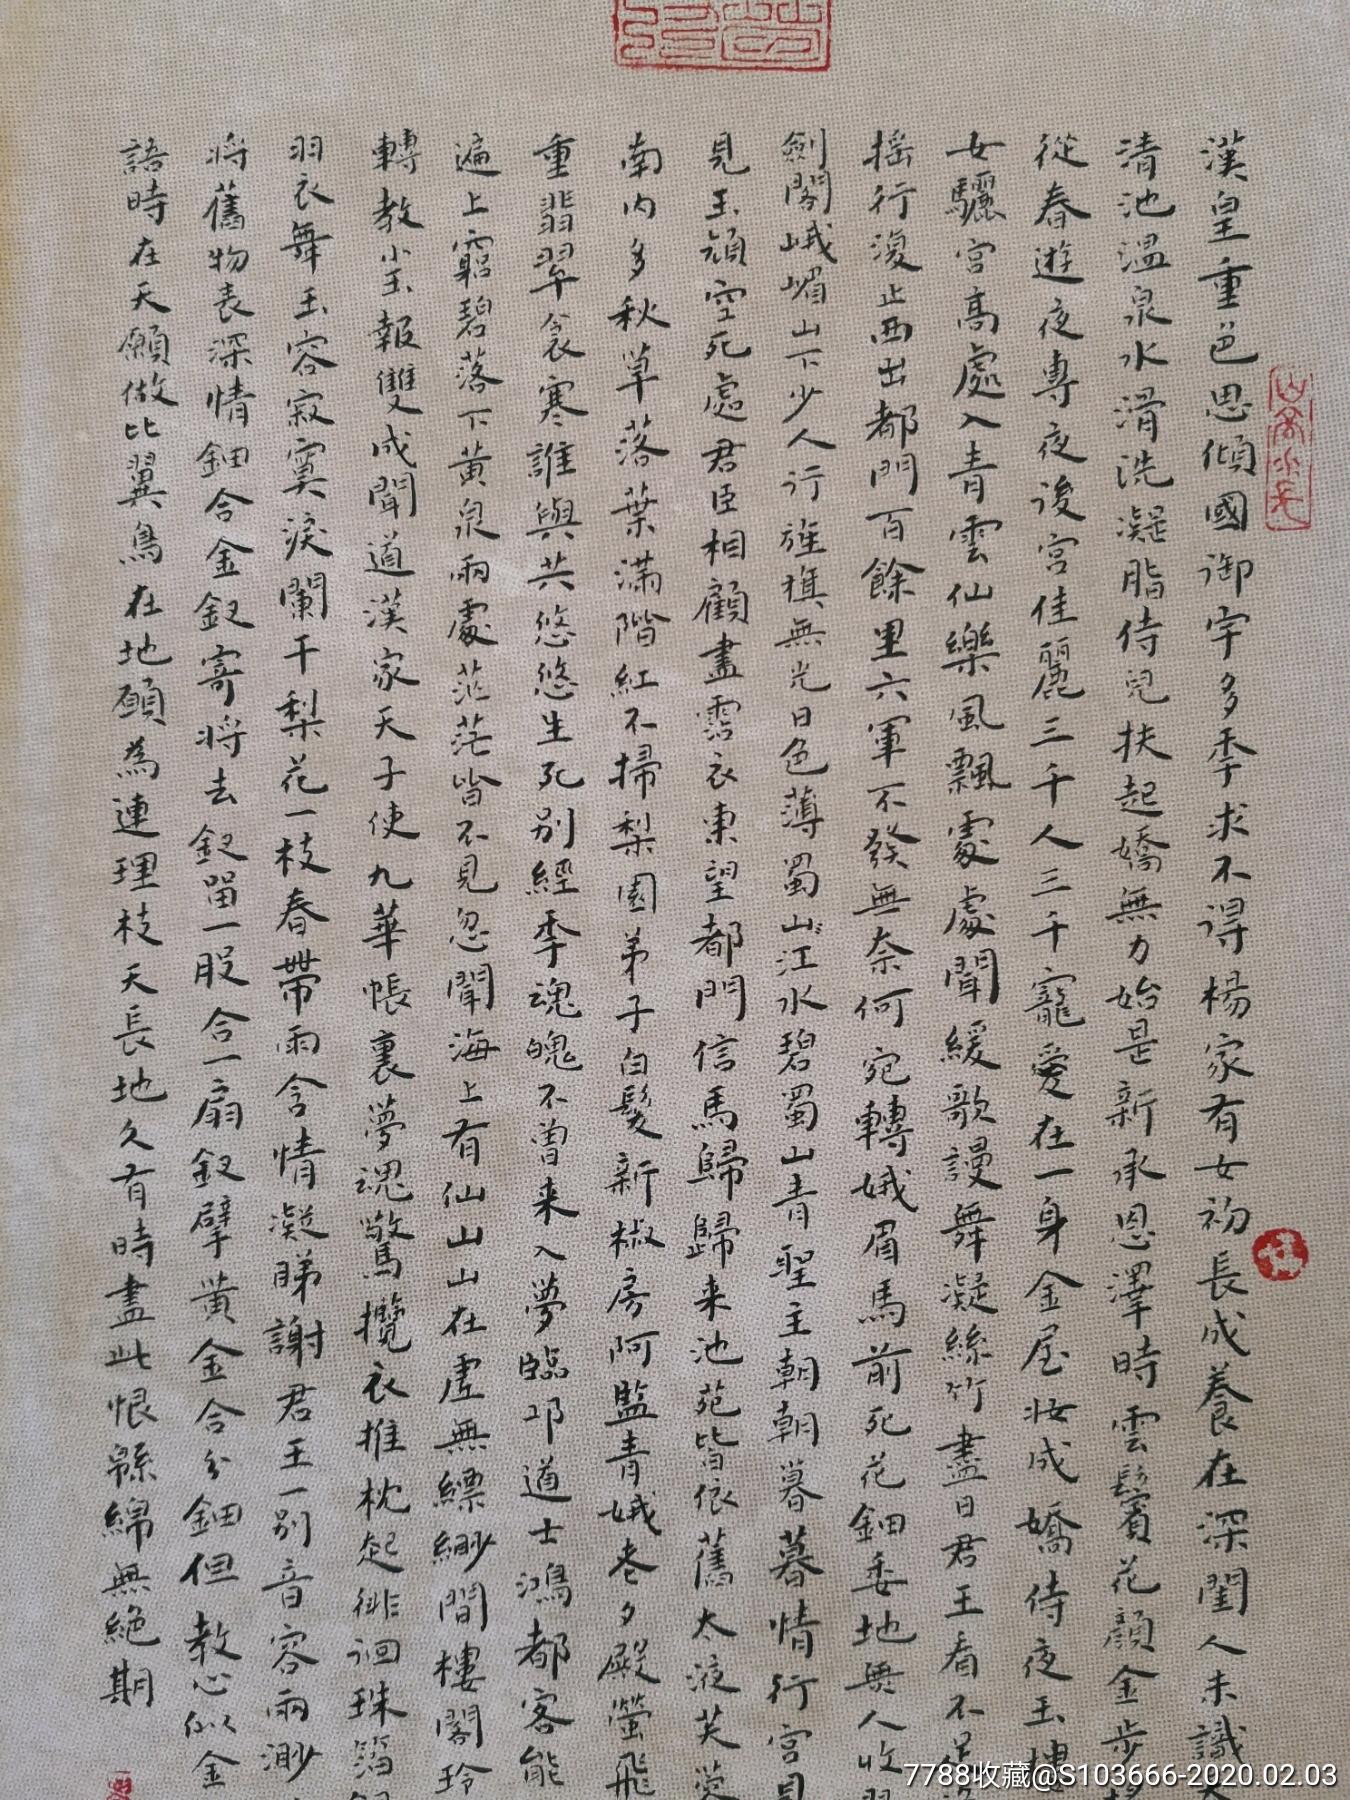 漢皇重色思傾國御宇多季求不得楊家有女初長成養在深閨人未識天
清池温泉水滑洗凝脂侍兒扶起嬌無力始是新承恩澤時雲鬢花顔金步
從春遊夜專夜後宮佳麗三千人三千寵愛在一身金屋妝成嬌侍夜玉樓
女驪宮高處入青雲仙樂風飄處處聞緩歌謾舞凝絲竹盡日君王看不足
摇行復止西出都門百餘里六軍不發無奈何宛轉娥眉馬前死花鈿委地無人收翠
劍閣峨嵋山下少人行旌旗無光日色薄蜀山江水碧蜀山青聖主朝朝暮暮情行宮見
見玉顔空死處君臣相顧盡霑衣東望都門信馬歸歸来池苑皆依舊太液芙蓉
南内多秋草落葉滿階紅不掃梨園弟子白髮新椒房阿監青娥老夕殿螢飛
重翡翠衾寒誰與共悠悠生死别經季魂魄不曾来入夢臨邛道士鴻都客能
遍上窮碧落下黄泉兩處茫茫皆不見忽聞海上有仙山山在虛無縹緲間樓閣玲
轉教小玉報雙成聞道漢家天子使九華帳裏夢魂驚攬衣推枕起徘徊珠箔
羽衣舞玉容寂寞淚闌干梨花一枝春帶雨含情凝睇謝君王一别音容兩渺
将舊物表深情鈿合金釵寄将去釵留一股合一扇釵擘黄金合分鈿但教心似金
語時在天願做比翼鳥在地願為連理枝天長地久有時盡此恨緜綿無絶期
7788收藏@S103666-2020.02.03